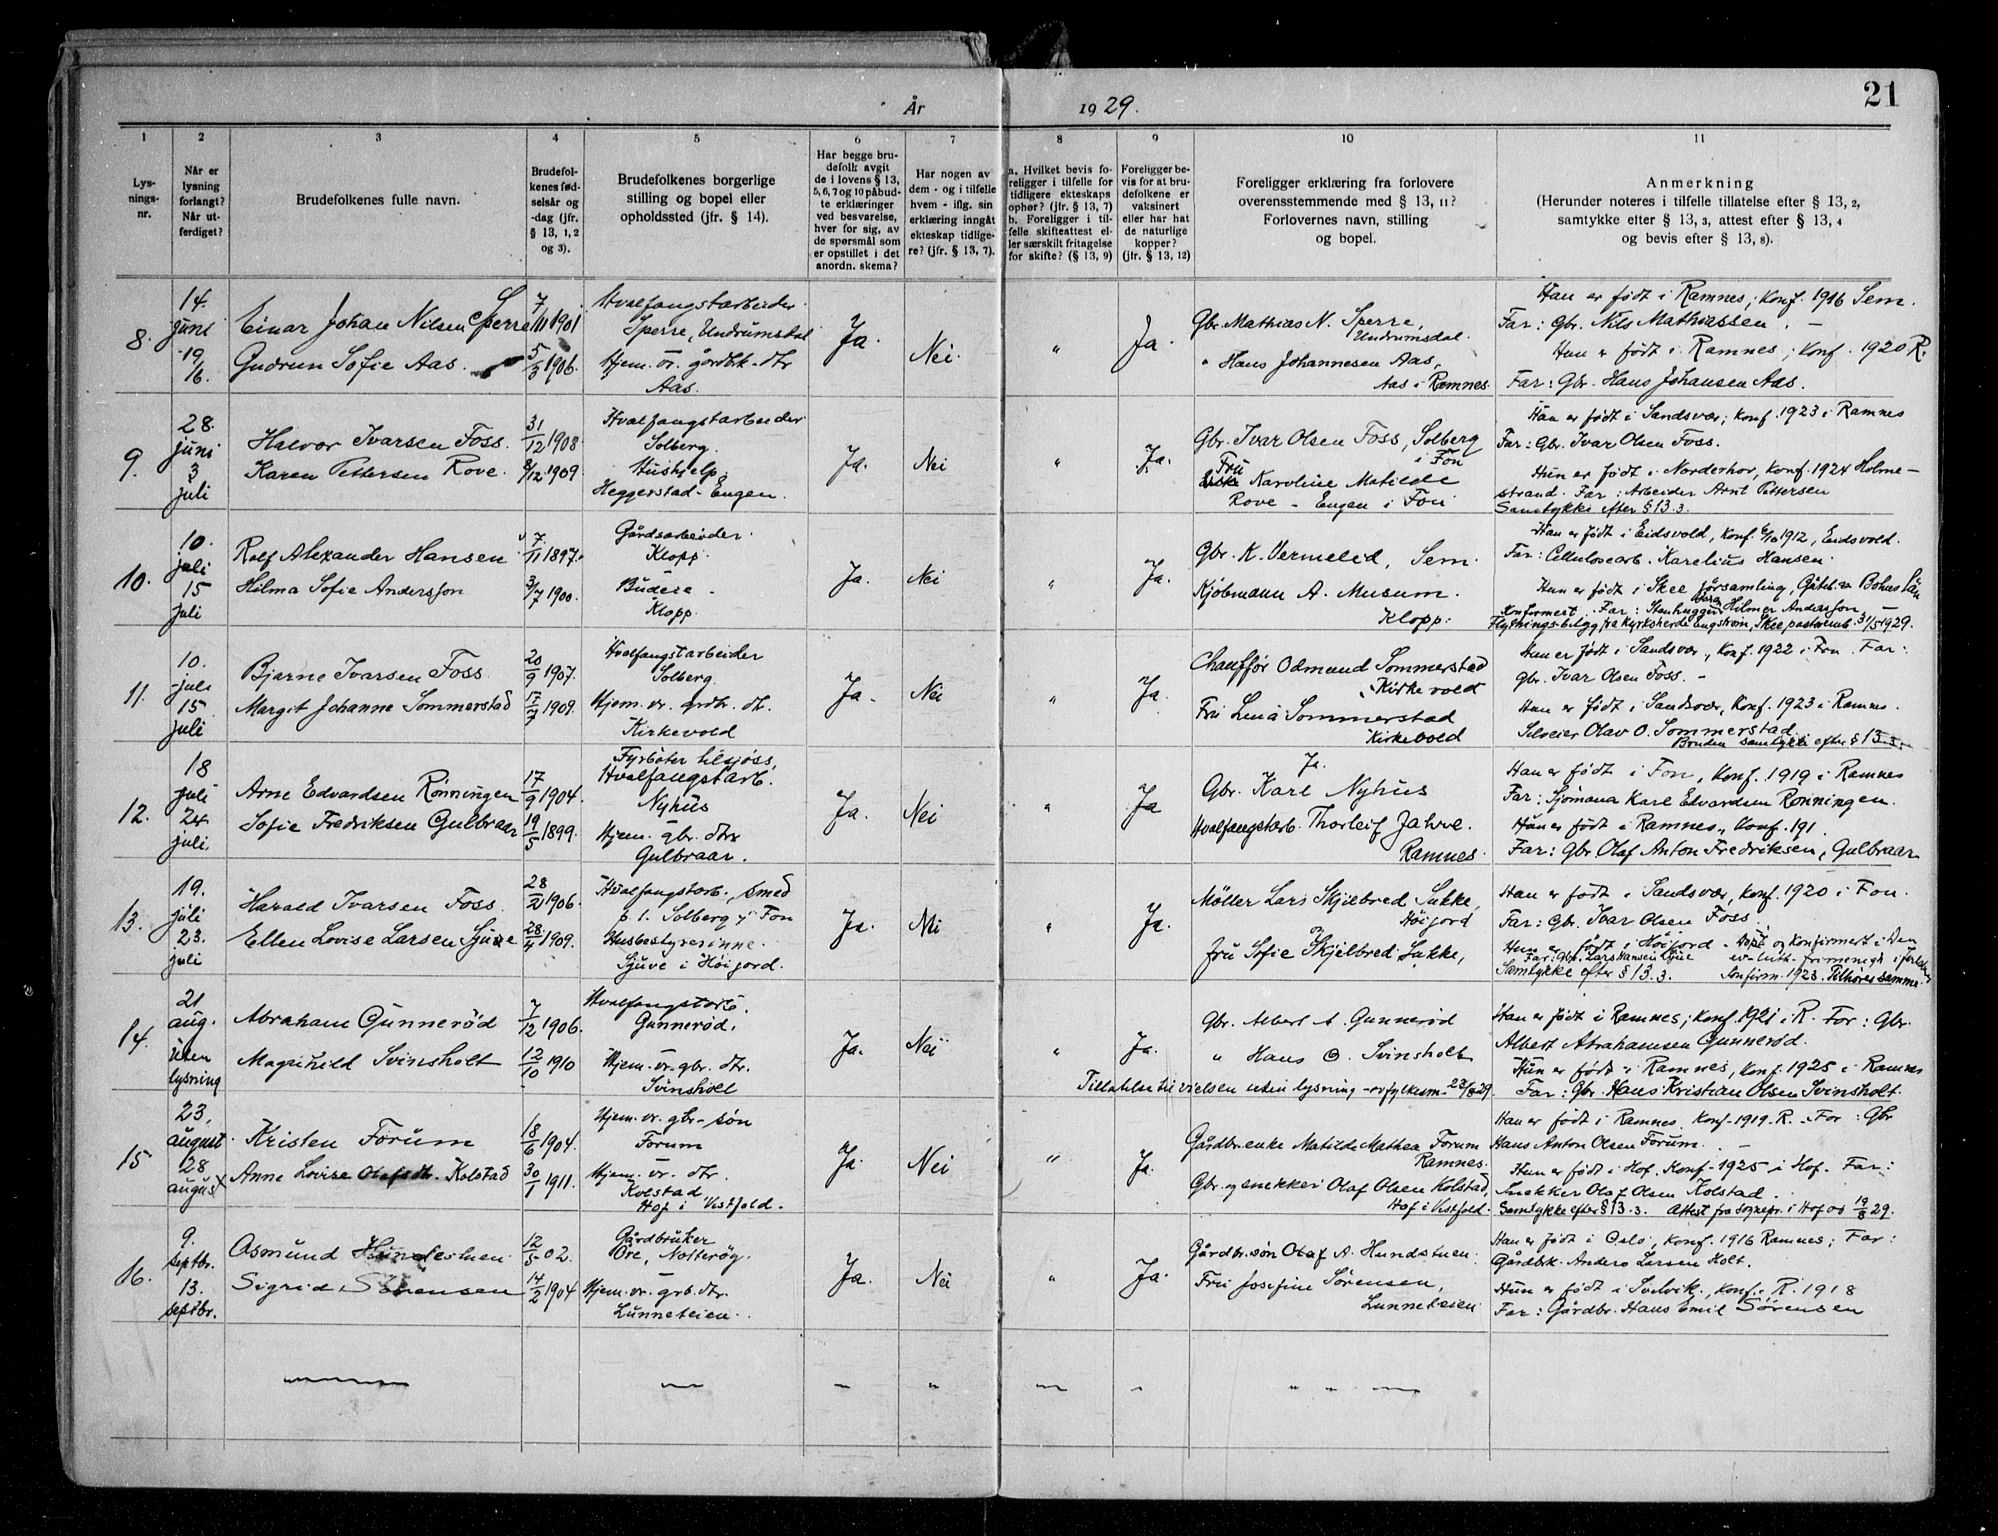 21
År 1929.
1 2 3 4 5 6 7 8 9 10 11
Lysningsnr.
Når er lysning forlangt? Når utferdiget?
Brudefolkenes fulle navn.
Brudefolkenes fødselsår og -dag (jfr. § 13, 1, 2 og 3).
Brudefolkenes borgerlige stilling og bopel eller opholdssted (jfr. § 14).
Har begge brudefolk avgit de i lovens § 13, 5, 6, 7 og 10 påbudte erklæringer ved besvarelse, hver for sig, av de spørsmål som er opstillet i det anordn. skema?
Har nogen av dem - og i tilfelle hvem - iflg. sin erklæring inngått ekteskap tidligere? (jfr. § 13, 7).
a. Hvilket bevis foreligger i tilfelle for tidligere ekteskaps ophør? (jfr. § 13, 7)
b. Foreligger i tilfelle skifteattest eller særskilt fritagelse for skifte? (§ 13, 9)
Foreligger bevis for at brudefolkene er vaksinert eller har hat de naturlige kopper? (jfr. § 13, 12)
Foreligger erklæring fra forlovere overensstemmende med § 13, 11? Forlovernes navn, stilling og bopel.
Anmerkning
(Herunder noteres i tilfelle tillatelse efter § 13, 2, samtykke efter § 13, 3, attest efter § 13, 4 og bevis efter § 13, 8).
8.
14. juni
19/6.
Einar Johan Nilsen Sperre
Gudrun Sofie Aas.
7/11 1901
5/3 1906.
Hvalfangstarbeider
Sperre, Undrumsdal
Hjem. vr. gårdbk. dtr
Aas.
Ja.
Nei.
"
Ja.
Gbr. Mathias N. Sperre,
Undrumsdal.
" Hans Johannesen Aas,
Aas i Ramnes.
Han er født i Ramnes, Konf. 1916 Sem.
Far: Gbr. Nils Mathiassen. –
Hun er født i Ramnes; Konf. 1920 R.
Far: Gbr. Hans Johansen Aas.
9.
28. juni
3 juli
Halvor Ivarsen Foss.
Karen Pettersen Rove.
31/12 1908
8/12 1909
Hvalfangstarbeider
Solberg.
Hushjelp.
Heggerstad-Engen.
Ja.
Nei
"
Ja.
Gbr. Ivar Olsen Foss, Solberg
i Fon
Fru
Karoline Matilde
Rove - Engen i Fon
Han er født i Sandsvær; Konf. 1923 i Ramnes
Far: Gbr. Ivar Olsen Foss.
Hun er født i Norderhov, Konf. 1924 Holme-
strand. Far: Arbeider Arnt Pettersen
Samtykke efter § 13.3.
10.
10. juli
15 juli
Rolf Alexander Hansen
Hilma Sofie Andersson
7/11 1897.
3/7 1900.
Gårdsarbeider.
Klopp.
Budeie -
Klopp.
Ja.
Nei
"
Ja.
Gbr. K. Vermelid, Sem.
Kjøbmann A. Musum.
Klopp.
Han er født i Eidsvold, Konf. 6/10 1912, Eidsvold.
Far: Cellulosearb. Karelius Hansen.
Hun er født i Skee församling, Göteb. o. Bohus Län
Konfirmert. Far: Stenhuggare Hilmer Andersson. –
Flytningsbetyg fra Kyrkoherde Engström, Skee pastoremb. 31/5 1929.
11.
10. juli
15 juli
Bjarne Ivarsen Foss
Margit Johanne Sommerstad
20/9 1907.
17/7 1909.
Hvalfangstarbeider
Solberg.
Hjem. vr. grdbr. dt.
Kirkevold
Ja.
Nei
"
Ja.
Chauffør Odmund Sommerstad
Kirkevold
Fru Lina Sommerstad
Kirkevold
Han er født i Sandsvær, Konf. 1922 i Fon. Far:
Gbr. Ivar Olsen Foss. –
Hun er født i Sandsvær, Konf. 1923 i Ramnes.
Olav O. Sommerstad.
Bruden samtykke efter § 13.3.
12.
18 juli
24 juli.
Arne Edvardsen Rønningen
Sofie Fredriksen Gulbraar
17/9 1904.
19/5 1899.
Fyrbøter tilsjøss,
Hvalfangstarb.
Nyhus
Hjem. gbr. dtr
Gulbraar.
Ja.
Nei
"
Ja
Ja.
Gbr. Karl Nyhus
Hvalfangstarb. Thorleif Jahre.
Ramnes.
Han er født i Fon, Konf. 1919 i Ramnes
Far: Sjömann Karl Edvardsen Rønningen.
Hun er født i Ramnes, Konf. 191 .
Far: Gbr. Olaf Anton Fredriksen, Gulbraar
13.
19. juli
23. juli
Harald Ivarsen Foss.
Ellen Lovise Larsen Sjuve
28/2 1906.
28/4 1909.
Hvalfangstarb., smed
p. t. Solberg i Fon
Husbestyrerinne.
Sjuve i Høijord.
Ja.
Nei
"
Ja.
Møller Lars Skjelbred Sukke,
Høijord
fru Sofie Skjelbred Sukke,
Han er født i Sandsvær, Konf. 1920 i Fon.
Far: Gbr. Ivar Olsen Foss.
Hun er født i Høijord - Døpt og Konfirmert i Den
Far: Gbr. Lars Hansen Sjue ev. luth. frimenigh i Jarlsberg
Samtykke efter § 13.3. Konfirm. 1923. Tilhører samme.
14.
21 aug.
uten lysning
Abraham Gunnerød
Magnhild Svinsholt
7/12 1906.
12/10 1910
Hvalfangstarb.
Gunnerød.
Hjem. vr. gbr. dtr.
Svinsholt
Ja.
Nei
"
Ja.
Gbr. Albert A. Gunnerød
" Hans O. Svinsholt
Tillatelse til vielsen uten lysning av fylkesm. 23/8 29.
Han er født i Ramnes; Konf. 1921 i R. Far: Gbr.
Albert Abrahamsen Gunnerød.
Hun er født i Ramnes, Konf. 1925 i Ramnes
Far: Gbr. Hans Kristian Olsen Svinsholt.
15.
23. august.
28 august
Kristen Forum
Anne Lovise Olafsdtr. Kolstad
18/6 1904.
30/1 1911.
Hjem. vr. gbr-søn
Forum
Hjem. vr. dtr.
Kolstad,
Hof i Vestfold.
Ja.
Nei
"
Ja.
Gårdbr.enke Matilde Mathea Forum
Ramnes.
Gbr. og snekker Olaf Olsen Kolstad,
Hof i Vestfold.
Han er født i Ramnes. Konf. 1919. R. - Far: Gbr
Hans Anton Olsen Forum. –
Hun er født i Hof. Konf. 1925 i Hof. Far:
Snekker Olaf Olsen Kolstad.
Samtykke efter § 13.3. Attest fra sognepr. i Hof 19/8 29.
16.
9. septbr.
13. septbr.
Asmund Hundestuen.
Sigrid Sørensen
12/5 02.
14/2 1904
Gårdbruker
Øre, Nøtterøy.
Hjem. vr. grb. dtr.
Lunneteien.
Ja.
Nei
"
Ja.
Gårdbr.søn Olaf A. Hundstuen.
Fru Josefine Sørensen,
Lunneteien
Han er født i Oslo, Konf. 1916 Ramnes; Far:
Gårdbk. Anders Larsen Holt.
Hun er født i Svelvik, Konf. R. 1918
Far: Gårdbr. Hans Emil Sørensen